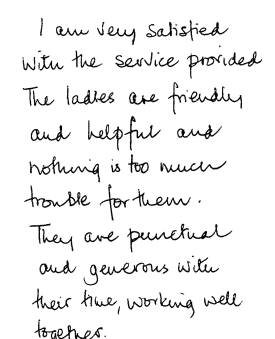 I am very satisfied
with the service provided
The ladies are friendly
and helpful and
nothing is too much
trouble for them.
They are punctual
and generous with
their time, working well
together.